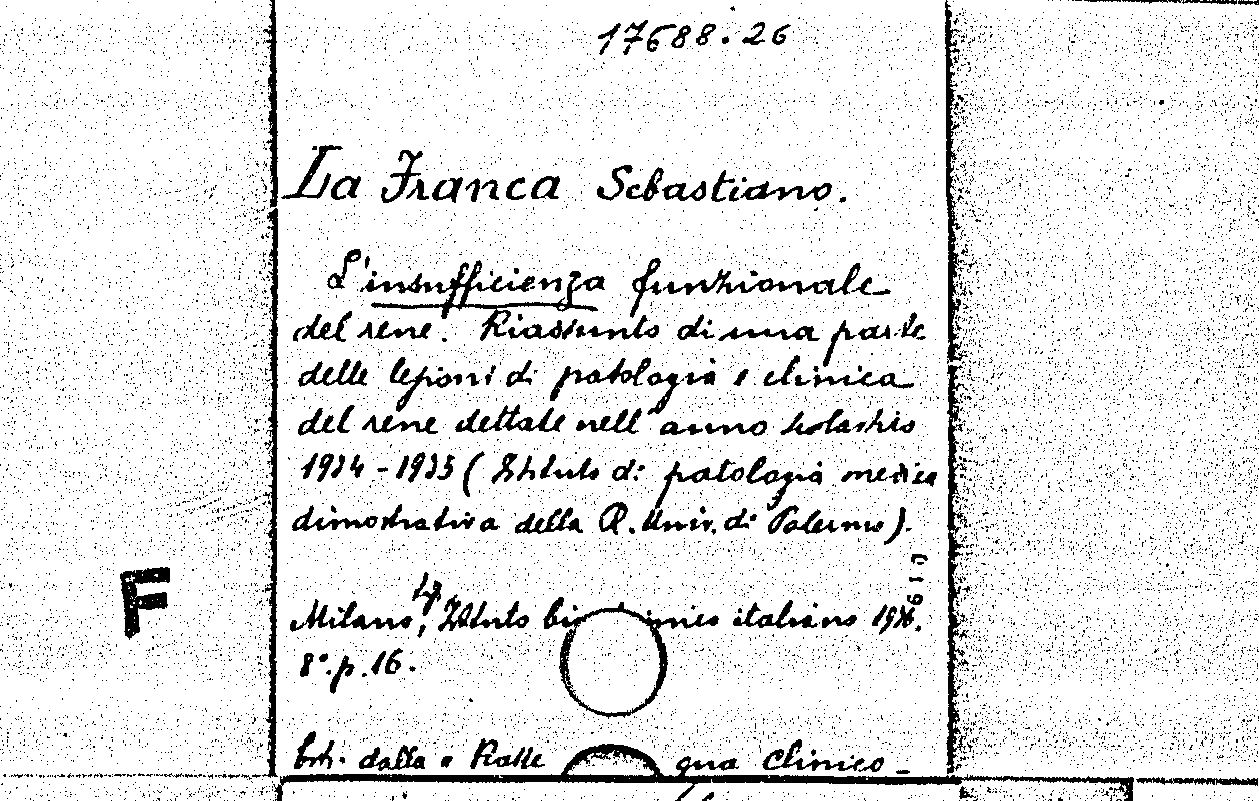 17688.26
La Franca Sebastiano.
L'insufficienza funzionale
del rene. Riassunto di una parte
delle lezioni di patologia e clinica
del rene dettate nell'anno scolastico
1934-1935 (Istituto di patologia medica
dimostrativa della R. Univ. di Palermo).
F
Milano, Istituto italiano
8°. p. 16.
Estr. dalla clinico-